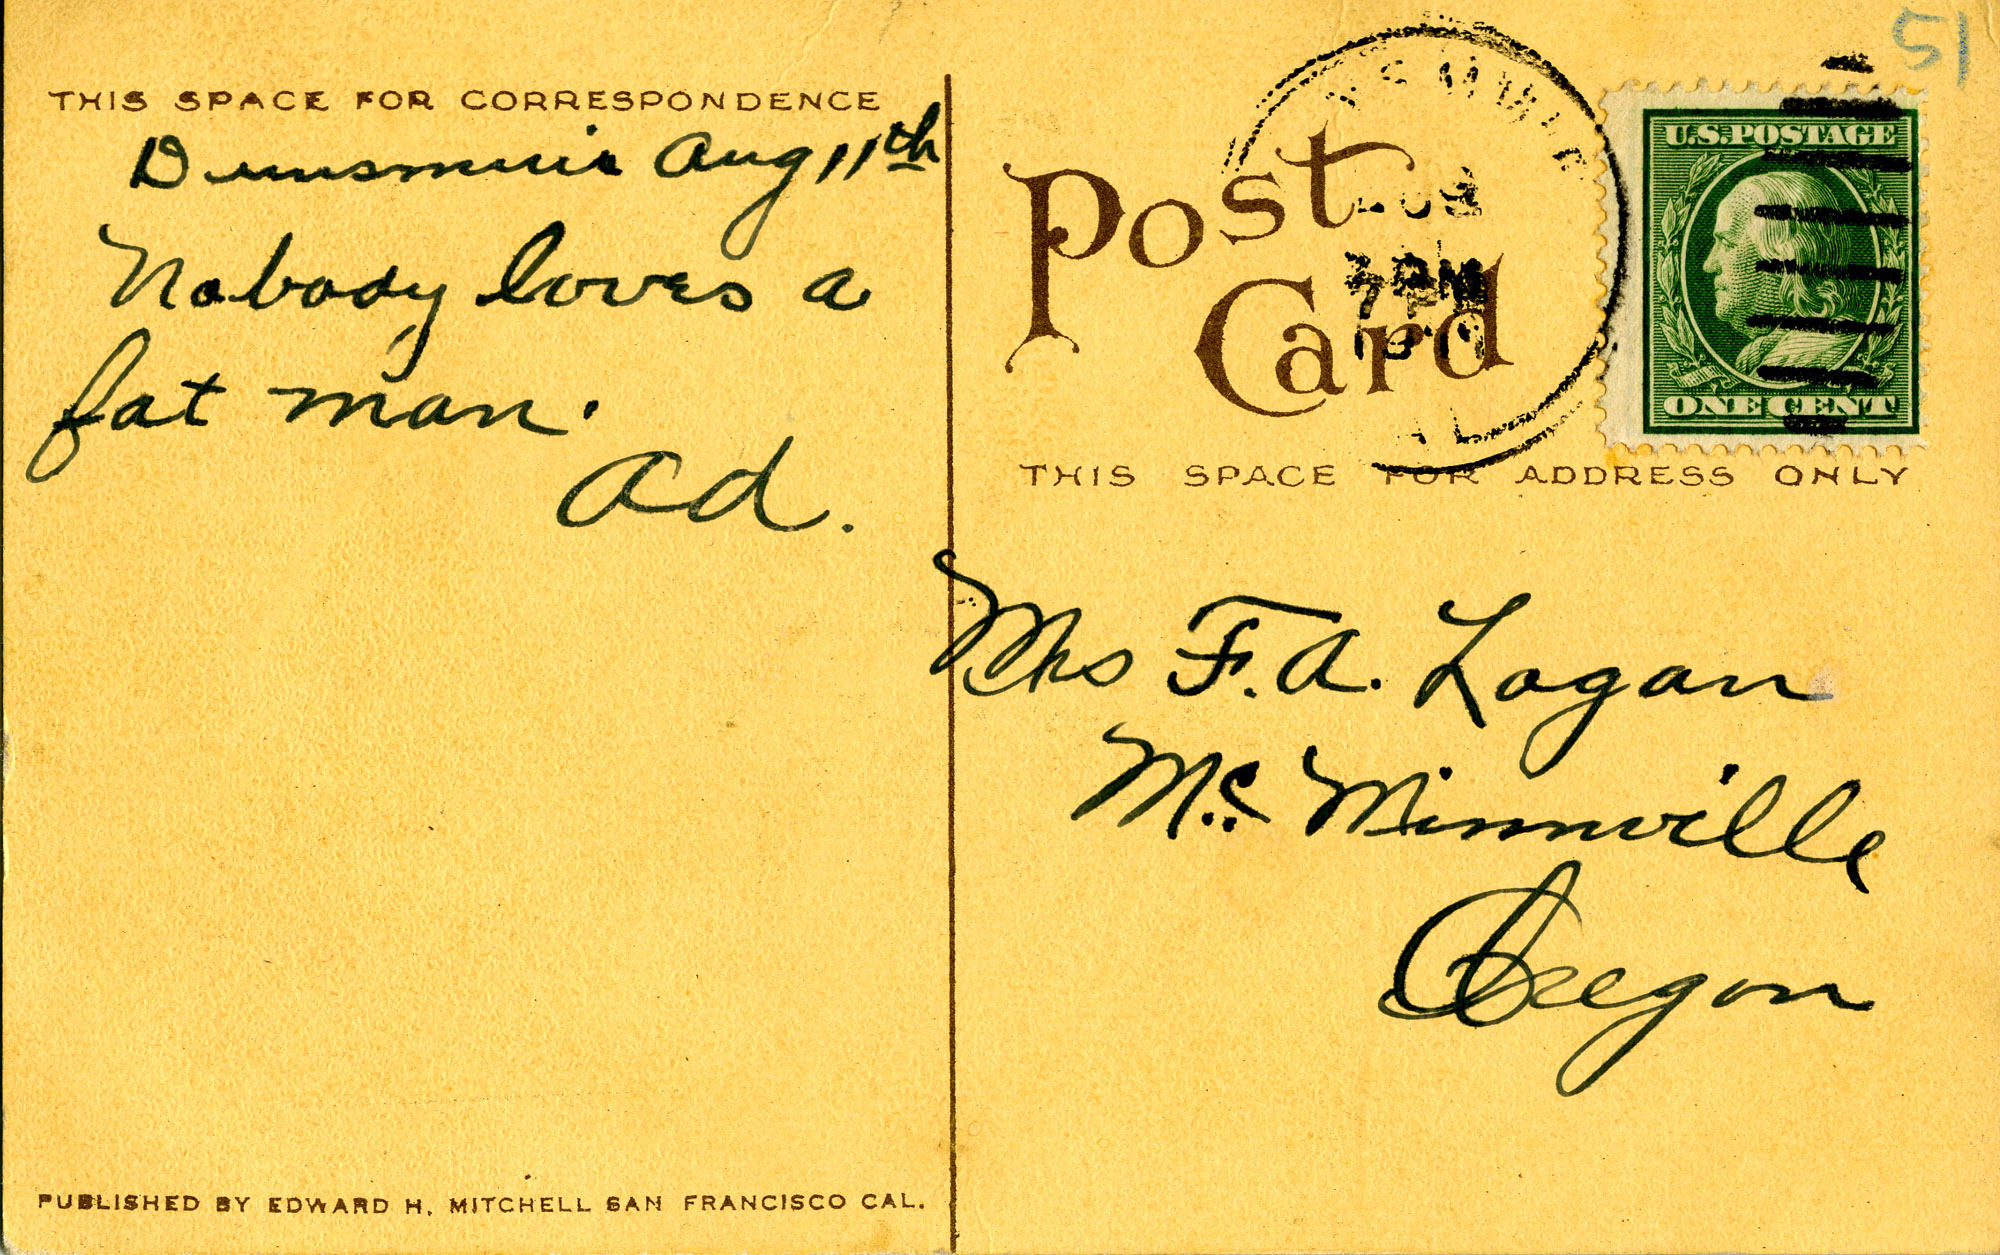 THIS SPACE FOR CORRESPONDENCE
Dunsmuir Aug 11th
Nobody loves a
fat man.
Ad.
PUBLISHED BY EDWARD H. MITCHELL SAN FRANCISCO CAL.
51
Post
Card
U.S. POSTAGE
ONE CENT
THIS SPACE FOR ADDRESS ONLY
Mrs F. A. Logan
Mc Minnville
Oregon